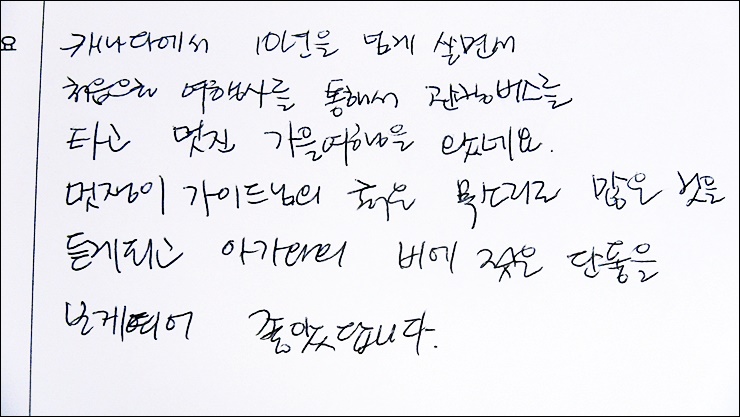 요
캐나다에서 10년을 넘게 살면서
처음으로 여행사를 통해서 관광버스를
타고 멋진 가을여행을 왔네요.
멋쟁이 가이드님의 목소리로 많은 것을
듣게되고 아가와의 비에 젖은 단풍을
보게되어 좋았답니다.